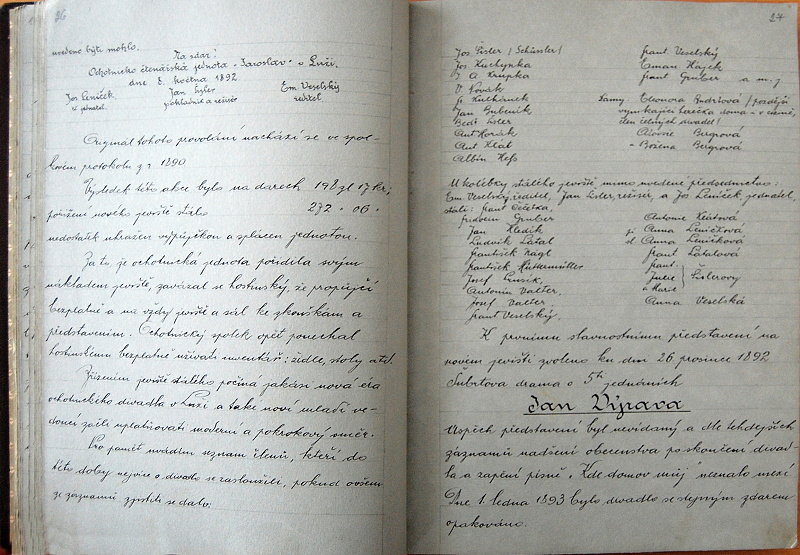 26
uvedeno býti mohlo.
Na zdar!
Ochotnicko čtenářská jednota "Jaroslav" v Luži,
dne 8. května 1892
Jos Leníček
t. č. jednatel
Jan Lisler
pokladník a režisér
Em. Veselský
ředitel
Originál tohoto provolání nachází se ve spol-
kovém protokolu z r 1890
Výsledek této akce bylo na darech 198 zl 17 kr;
pořízení nového jeviště stálo 272 . 06 .
nedostatek uhražen výpůjčkou a splacen jednotou.
Za to, je ochotnická jednota pořídila svým
nákladem jeviště, zavázal se hostinský, že propůjčí
bezplatně a na vždy jeviště a sál ke zkouškám a
představením. Ochotnický spolek opět ponechal
hostinskému bezplatné užívati inventář: židle, stoly atd.
Zřízením jeviště stálého počíná jakási nová éra
ochotnického divadla v Luži a také noví mladí ve-
doucí začli uplatňovati moderní a pokrokový směr.
Pro paměť uvádím seznam členů, kteří do
této doby nejvíce o divadlo se zasloužili, pokud ovšem
ze záznamů zjistiti se dalo:
27
Jos Lisler /Schüssler/
Jos Kuchynka
J A Krupka
V Kovář
Jan Bubeník
Bedř Lisler
Ant Horák
Ant Klát
Albín Hefs
Frant. Veselský
Eman Hájek
Frant Gruber a m. j
Eleonora /později
vynikající herečka doma i v cizině,
člen čelných divadel/
Aloisie Bergrová
" Božena Bergrová
U kolébky stálého jeviště, mimo uvedené předsednictvo:
Em. Veselský, ředitel, Jan Lisler, režisér, a Jos Leníček jednatel,
stáli: Frant Čečetka,
Gruber
Jan Kledík
Ludvík Látal
František Nágl
František Küttenmüller
Josef
Antonín Valter,
Josef Valter
Frant Veselský.
Antonie Klátová
sl Anna Leníčková
sl Anna Leníčková
Frant Látalová
Frant.
Julie Lislerovy
a Marie
Anna Veselská
K prvnímu slavnostnímu představení na
novém jevišti zvoleno ku dni 26 prosince 1892
Šubrtova drama o 5ti jednáních
Jan Výrava
Úspěch představení byl nevídaný a dle tehdejších
záznamů nadšení obecenstva po skončení divad-
la a zapění písně "Kde domov můj" neznalo mezí
Dne 1. ledna 1893 bylo divadlo se stejným zdarem
opakováno.